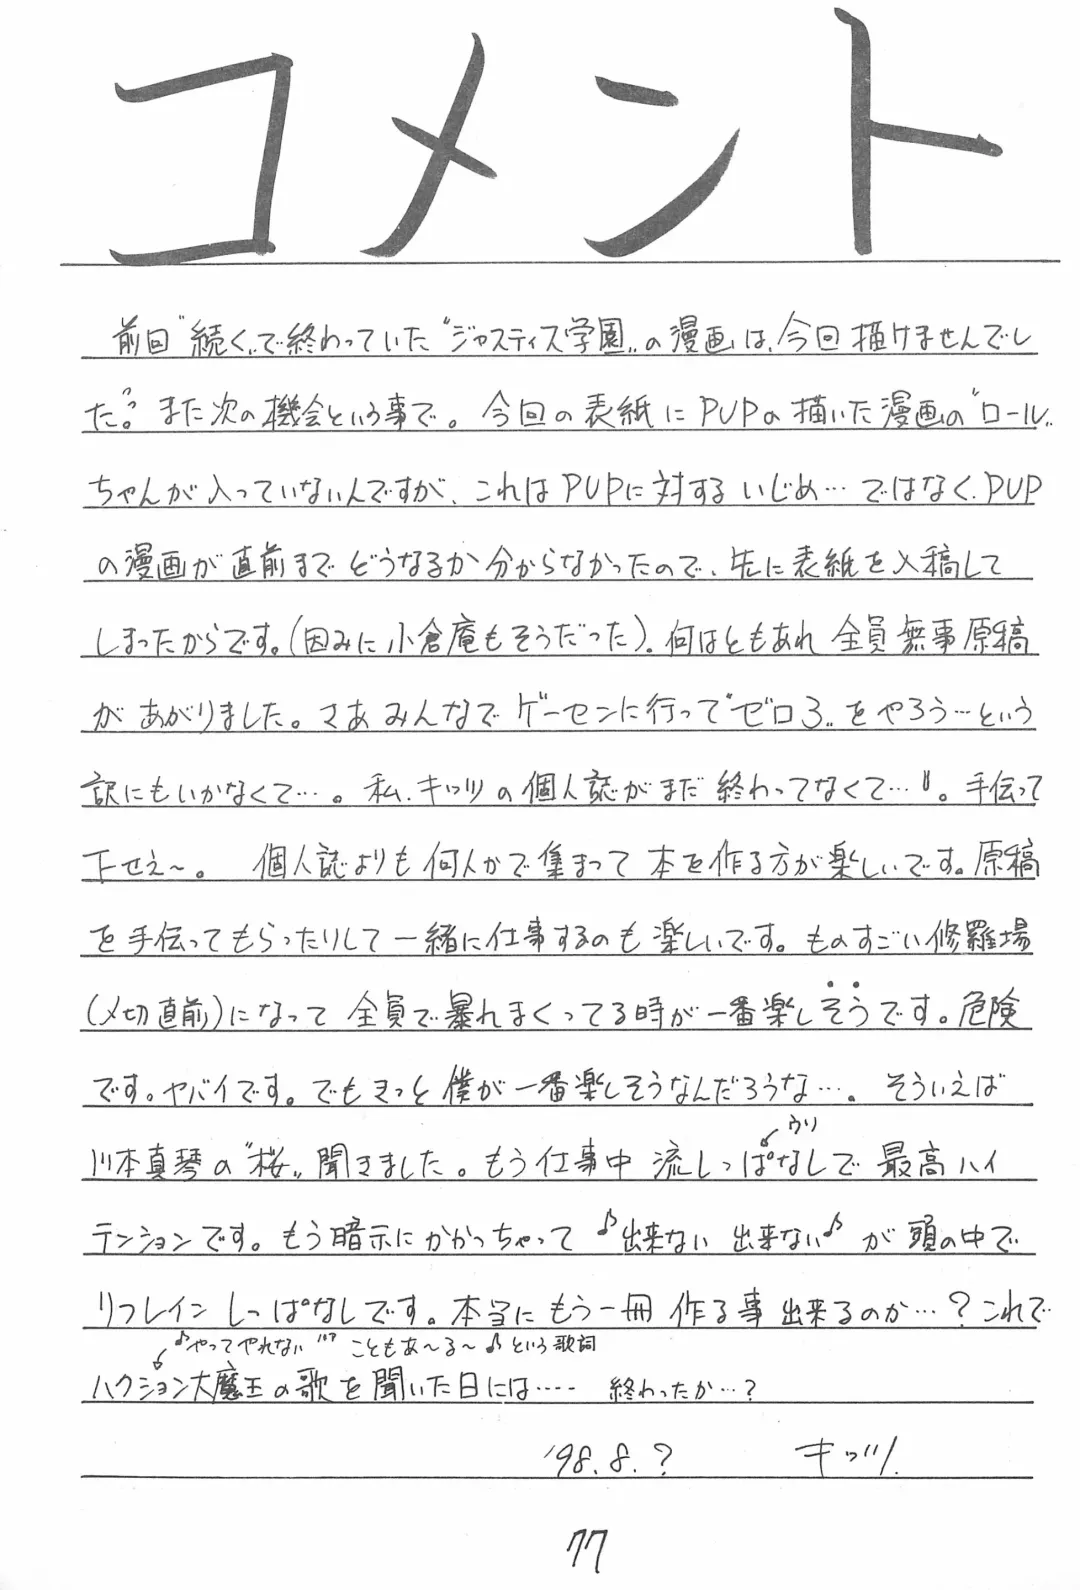 コメント
前回〝続く〟で終わっていた〝ジャスティス学園〟の漫画は、今回描けませんでし
た。また次の機会という事で。今回の表紙にPUPの描いた漫画の〝ロール〟
ちゃんが入っていないんですが、これはPUPに対するいじめ…ではなく、PUP
の漫画が直前までどうなるか分からなかったので、先に表紙を入稿して
しまったからです。(因みに小倉庵もそうだった)。何はともあれ全員無事原稿
があがりました。さあみんなでゲーセンに行って〝ゼロ3〟をやろう…という
訳にもいかなくて…。私、キッツの個人誌がまだ終わってなくて…。手伝って
下せえ~。 個人誌よりも何人かで集まって本を作る方が楽しいです。原稿
を手伝ってもらったりして一緒に仕事するのも楽しいです。ものすごい修羅場
(〆切直前)になって全員で暴れまくってる時が一番楽しそうです。危険
です。ヤバイです。でもきっと僕が一番楽しそうなんだろうな…。そういえば
ウソ
川本真琴の〝桜〟聞きました。もう仕事中流しっぱなしで最高ハイ
テンションです。もう暗示にかかっちゃって♪出来ない出来ない♪が頭の中で
リフレインしっぱなしです。本当にもう一冊作る事出来るのか…?これで
♪やってやれない こともあ~る~♪という歌詞
ハクション大魔王の歌を聞いた日には…… 終わったか…?
'98.8.? キッツ.
77